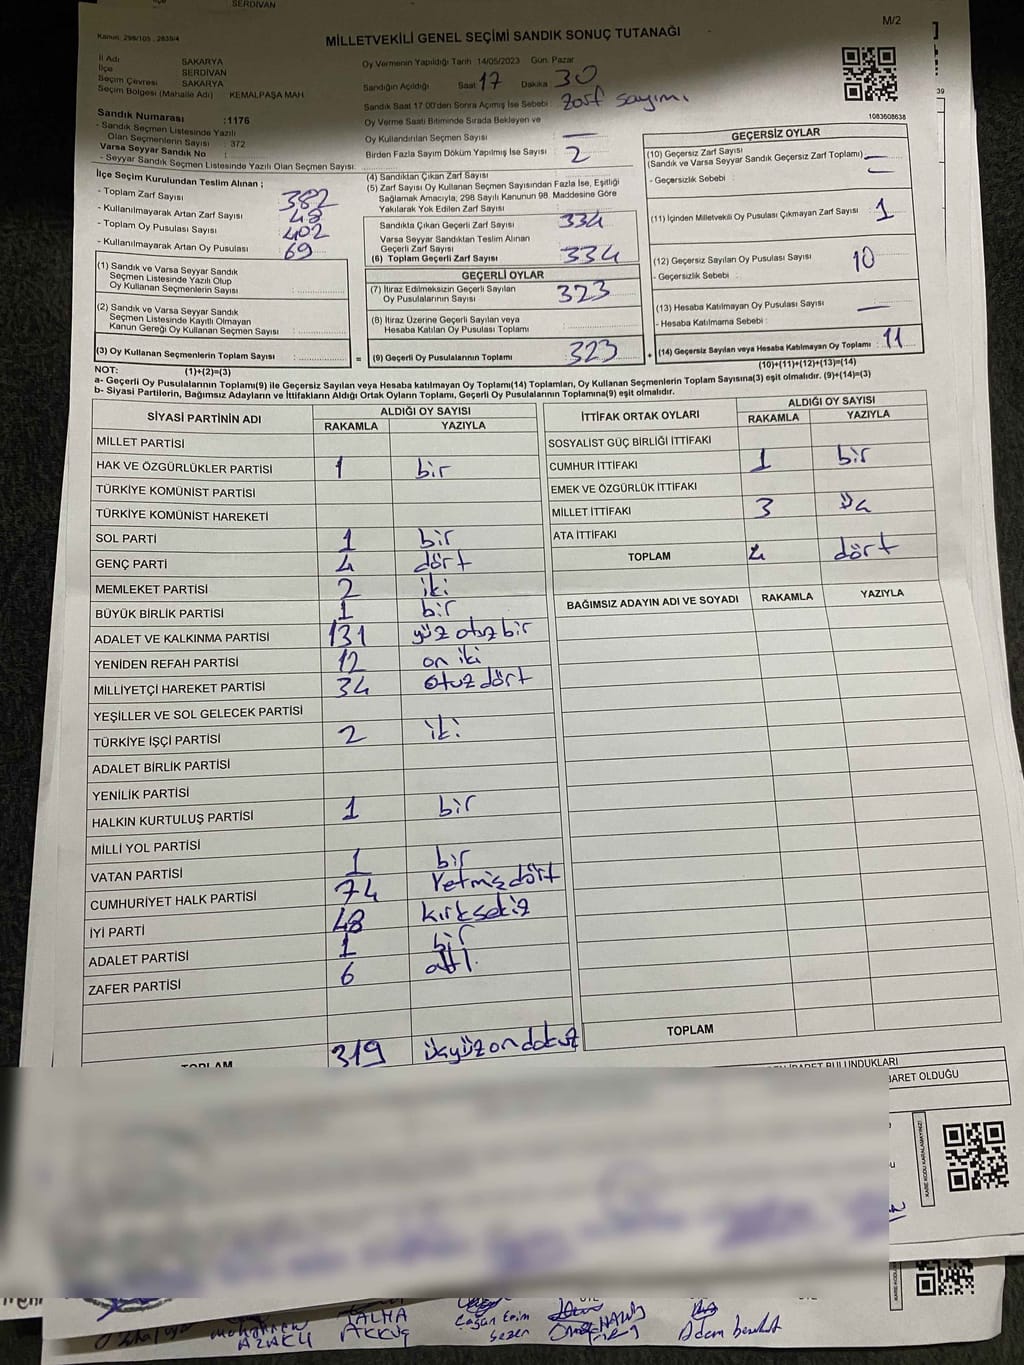 SERDİVAN
Kanun 298/105 , 2839/4
MİLLETVEKİLİ GENEL SEÇİMİ SANDIK SONUÇ TUTANAĞI
M/2
İl Adı SAKARYA
İlçe SERDİVAN
Seçim Çevresi SAKARYA
Seçim Bölgesi (Mahalle Adı) KEMALPAŞA MAH.
Sandık Numarası :1176
- Sandık Seçmen Listesinde Yazılı
Olan Seçmenlerin Sayısı : 372
Varsa Seyyar Sandık No :
- Seyyar Sandık Seçmen Listesinde Yazılı Olan Seçmen Sayısı:
Oy Vermenin Yapıldığı Tarih 14/05/2023 Gün: Pazar
Sandığın Açıldığı Saat 17 Dakika 30
Sandık Saat 17:00'den Sonra Açımış İse Sebebi : zarf sayımı
Oy Verme Saati Bitiminde Sırada Bekleyen ve
Oy Kullandırılan Seçmen Sayısı —
Birden Fazla Sayım Döküm Yapılmış İse Sayısı 2
39
1083608638
İlçe Seçim Kurulundan Teslim Alınan ;
- Toplam Zarf Sayısı 382
- Kullanılmayarak Artan Zarf Sayısı 48
- Toplam Oy Pusulası Sayısı 402
- Kullanılmayarak Artan Oy Pusulası 69
(1) Sandık ve Varsa Seyyar Sandık
Seçmen Listesinde Yazılı Olup
Oy Kullanan Seçmenlerin Sayısı :
(2) Sandık ve Varsa Seyyar Sandık
Seçmen Listesinde Kayıtlı Olmayan
Kanun Gereği Oy Kullanan Seçmen Sayısı :
(3) Oy Kullanan Seçmenlerin Toplam Sayısı :
(1)+(2)=(3)
(4) Sandıktan Çıkan Zarf Sayısı
(5) Zarf Sayısı Oy Kullanan Seçmen Sayısından Fazla İse, Eşitliği
Sağlamak Amacıyla, 298 Sayılı Kanunun 98. Maddesine Göre
Yakılarak Yok Edilen Zarf Sayısı
Sandıkta Çıkan Geçerli Zarf Sayısı 334
Varsa Seyyar Sandıktan Teslim Alınan
Geçerli Zarf Sayısı
(6) Toplam Geçerli Zarf Sayısı 334
GEÇERLİ OYLAR
(7) İtiraz Edilmeksizin Geçerli Sayılan
Oy Pusulalarının Sayısı 323
(8) İtiraz Üzerine Geçerli Sayılan veya
Hesaba Katılan Oy Pusulası Toplamı
= (9) Geçerli Oy Pusulalarının Toplamı 323 +
GEÇERSİZ OYLAR
(10) Geçersiz Zarf Sayısı
(Sandık ve Varsa Seyyar Sandık Geçersiz Zarf Toplamı) —
- Geçersizlik Sebebi : —
(11) İçinden Milletvekili Oy Pusulası Çıkmayan Zarf Sayısı 1
(12) Geçersiz Sayılan Oy Pusulası Sayısı 10
- Geçersizlik Sebebi :
(13) Hesaba Katılmayan Oy Pusulası Sayısı —
- Hesaba Katılmama Sebebi :
(14) Geçersiz Sayılan veya Hesaba Katılmayan Oy Toplamı : 11
(10)+(11)+(12)+(13)=(14)
NOT:
a- Geçerli Oy Pusulalarının Toplamı(9) ile Geçersiz Sayılan veya Hesaba katılmayan Oy Toplamı(14) Toplamları, Oy Kullanan Seçmenlerin Toplam Sayısına(3) eşit olmalıdır. (9)+(14)=(3)
b- Siyasi Partilerin, Bağımsız Adayların ve İttifakların Aldığı Ortak Oyların Toplamı, Geçerli Oy Pusulalarının Toplamına(9) eşit olmalıdır.
SİYASİ PARTİNİN ADI ALDIĞI OY SAYISI
RAKAMLA YAZIYLA
MİLLET PARTİSİ
HAK VE ÖZGÜRLÜKLER PARTİSİ 1 bir
TÜRKİYE KOMÜNİST PARTİSİ
TÜRKİYE KOMÜNİST HAREKETİ
SOL PARTİ 1 bir
GENÇ PARTİ 4 dört
MEMLEKET PARTİSİ 2 iki
BÜYÜK BİRLİK PARTİSİ 1 bir
ADALET VE KALKINMA PARTİSİ 131 yüz otuz bir
YENİDEN REFAH PARTİSİ 12 on iki
MİLLİYETÇİ HAREKET PARTİSİ 34 otuz dört
YEŞİLLER VE SOL GELECEK PARTİSİ
TÜRKİYE İŞÇİ PARTİSİ 2 iki
ADALET BİRLİK PARTİSİ
YENİLİK PARTİSİ
HALKIN KURTULUŞ PARTİSİ 1 bir
MİLLİ YOL PARTİSİ
VATAN PARTİSİ 1 bir
CUMHURİYET HALK PARTİSİ 74 Yetmiş dört
İYİ PARTİ 48 kırk sekiz
ADALET PARTİSİ 1 bir
ZAFER PARTİSİ 6 altı
TOPLAM 319 üçyüz on dokuz
İTTİFAK ORTAK OYLARI ALDIĞI OY SAYISI
RAKAMLA YAZIYLA
SOSYALİST GÜÇ BİRLİĞİ İTTİFAKI
CUMHUR İTTİFAKI 1 bir
EMEK VE ÖZGÜRLÜK İTTİFAKI
MİLLET İTTİFAKI 3 üç
ATA İTTİFAKI
TOPLAM 4 dört
BAĞIMSIZ ADAYIN ADI VE SOYADI RAKAMLA YAZIYLA
TOPLAM
BULUNDUKLARI
BARET OLDUĞU
KARE KODU KARALAMAYINIZ!
TALHA
AKKUŞ
Çağan Ekim
Sezen
Adem